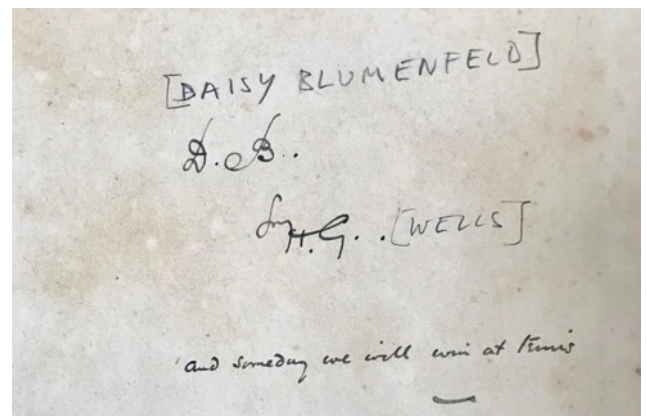 [DAISY BLUMENFELD]
D. B..
from H. G. . [WELLS]
and someday we will win at tennis